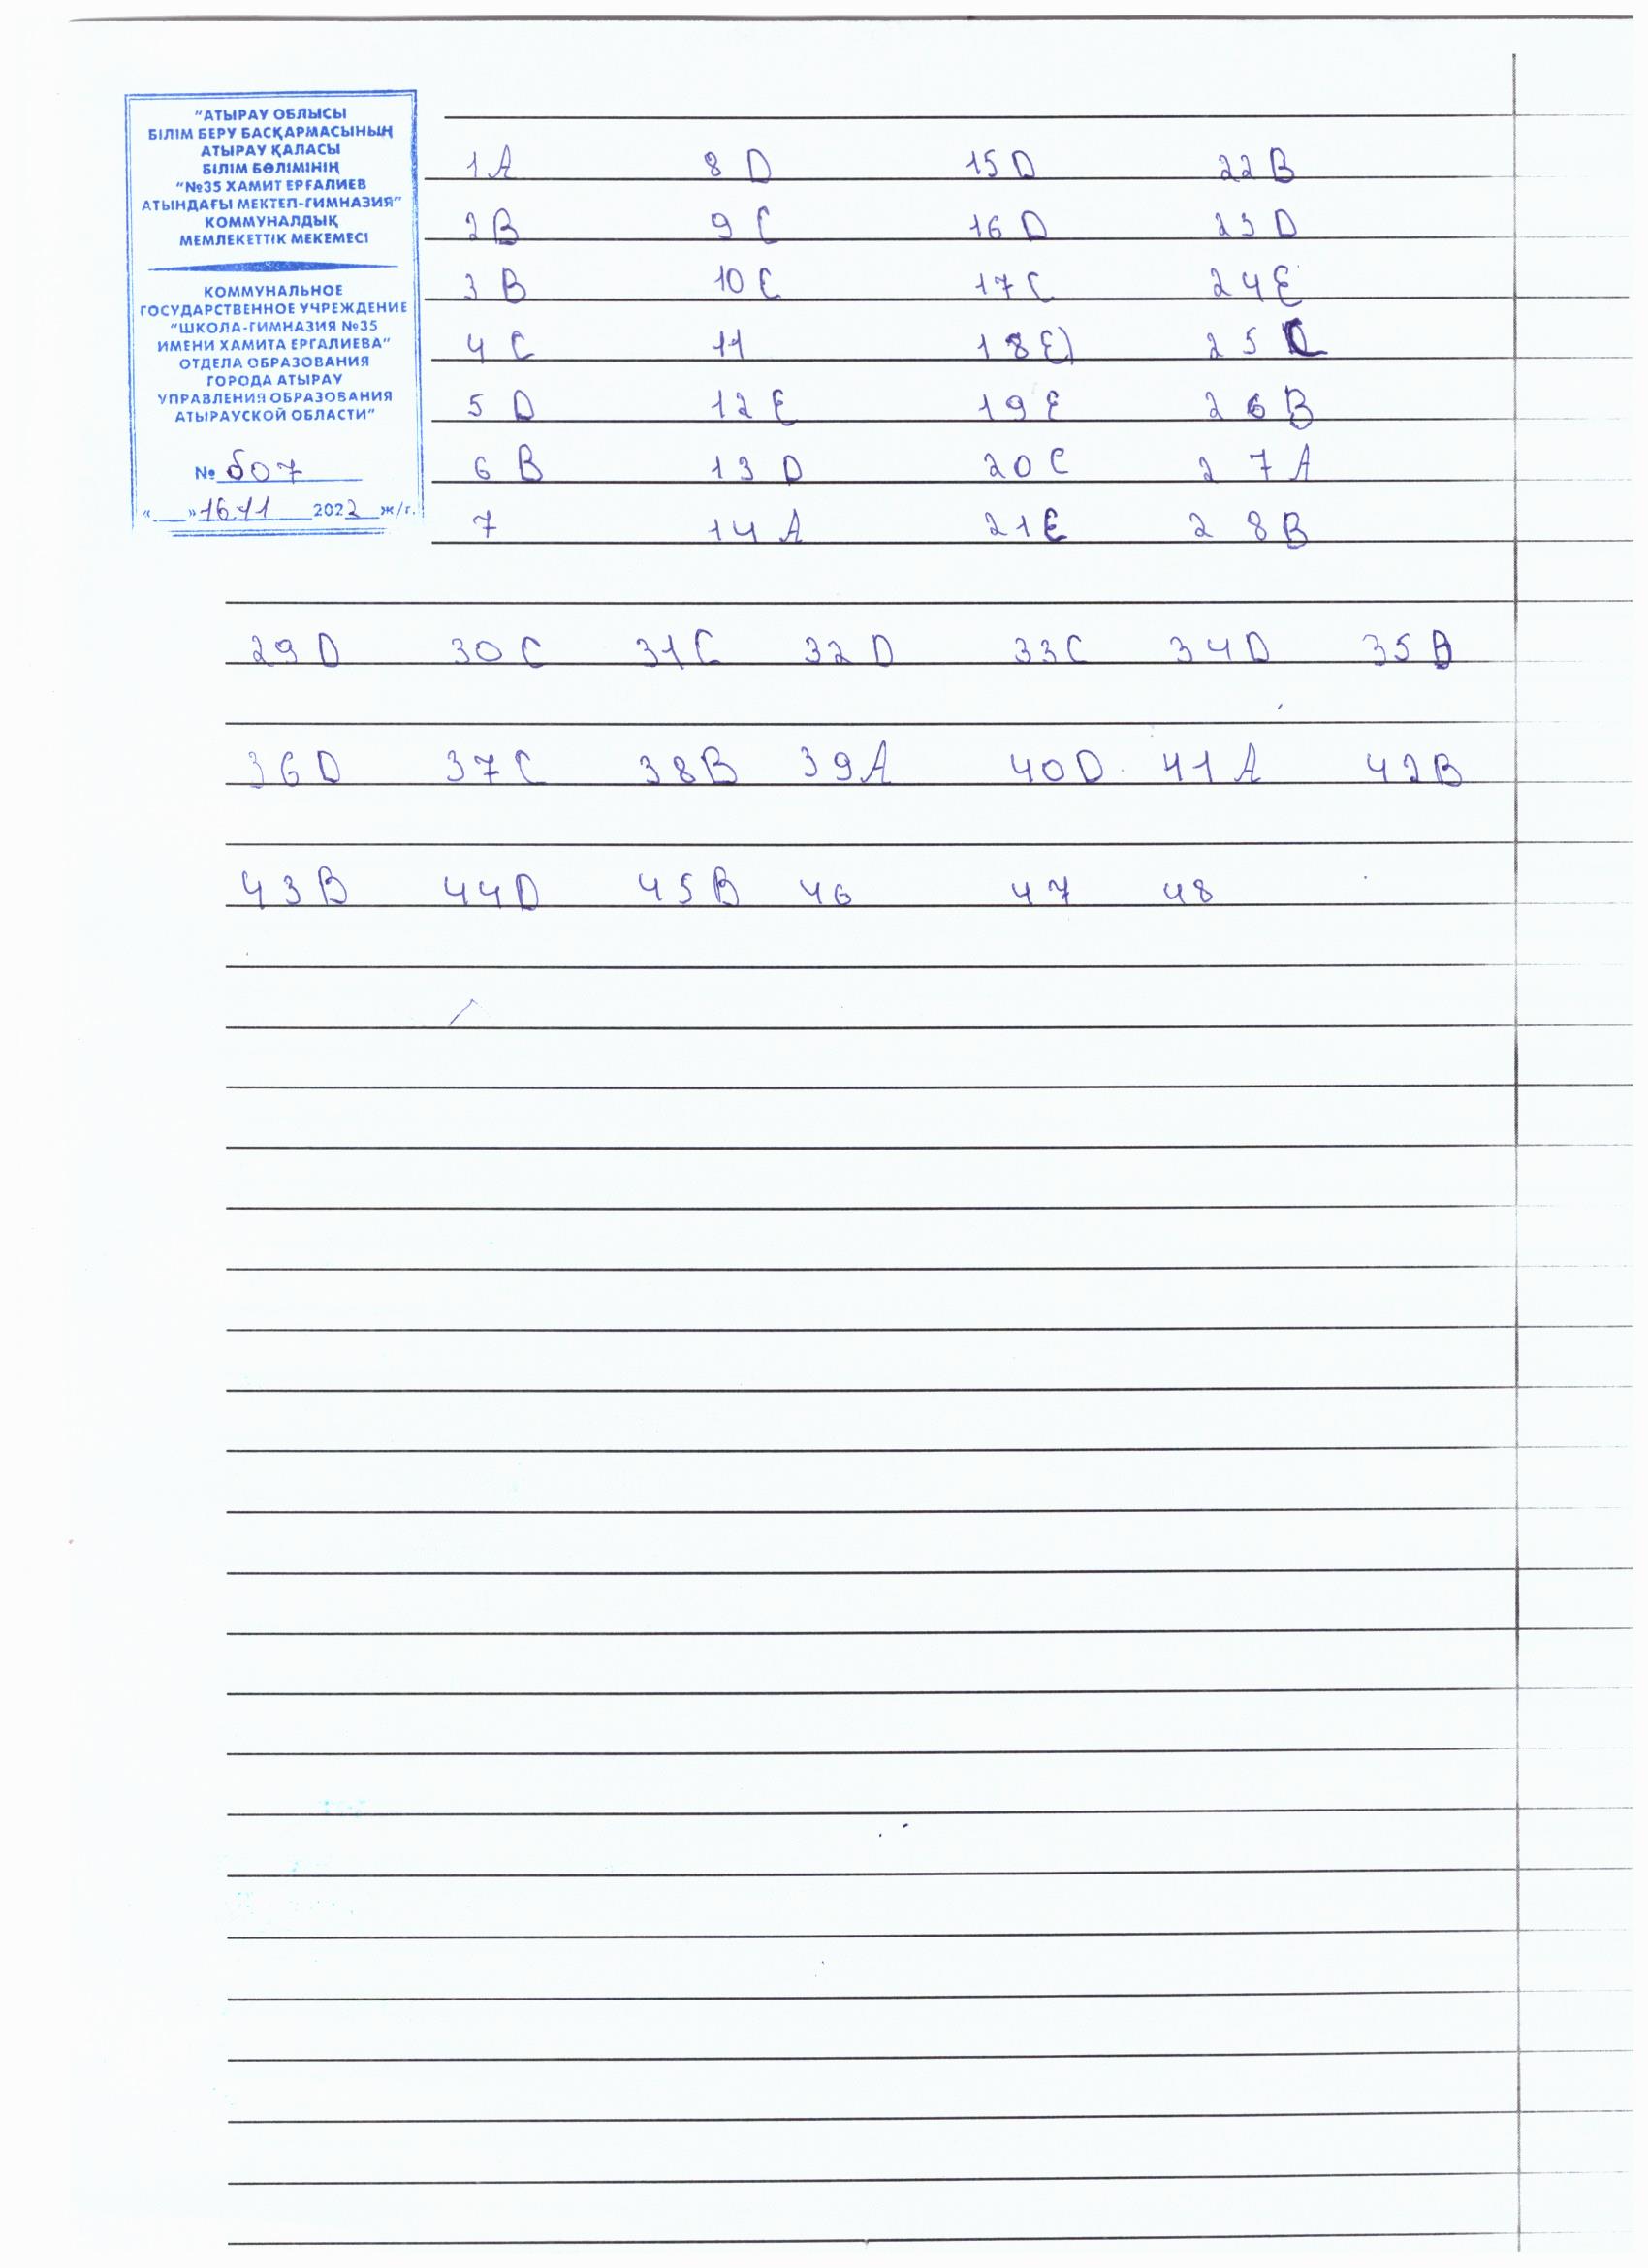 "АТЫРАУ ОБЛЫСЫ
БІЛІМ БЕРУ БАСҚАРМАСЫНЫҢ
АТЫРАУ ҚАЛАСЫ
БІЛІМ БӨЛІМІНІҢ
"№35 ХАМИТ ЕРҒАЛИЕВ
АТЫНДАҒЫ МЕКТЕП-ГИМНАЗИЯ"
КОММУНАЛДЫҚ
МЕМЛЕКЕТТІК МЕКЕМЕСІ
КОММУНАЛЬНОЕ
ГОСУДАРСТВЕННОЕ УЧРЕЖДЕНИЕ
"ШКОЛА-ГИМНАЗИЯ №35
ИМЕНИ ХАМИТА ЕРГАЛИЕВА"
ОТДЕЛА ОБРАЗОВАНИЯ
ГОРОДА АТЫРАУ
УПРАВЛЕНИЯ ОБРАЗОВАНИЯ
АТЫРАУСКОЙ ОБЛАСТИ"
№ 507
«___» 16.11 2022 ж/г.
1A 8D 15D 22B
2B 9C 16D 23D
3B 10C 17C 24E
4C 11 18E) 25C
5D 12E 19E 26B
6B 13D 20C 27A
7 14A 21E 28B
29D 30C 31C 32D 33C 34D 35B
36D 37C 38B 39A 40D 41A 42B
43B 44D 45B 46 47 48